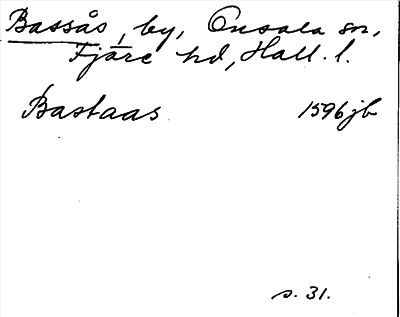 Bassås, by, Onsala sn,
Fjäre hd, Hall. l.
Bastaas 1596 jb
s. 31.